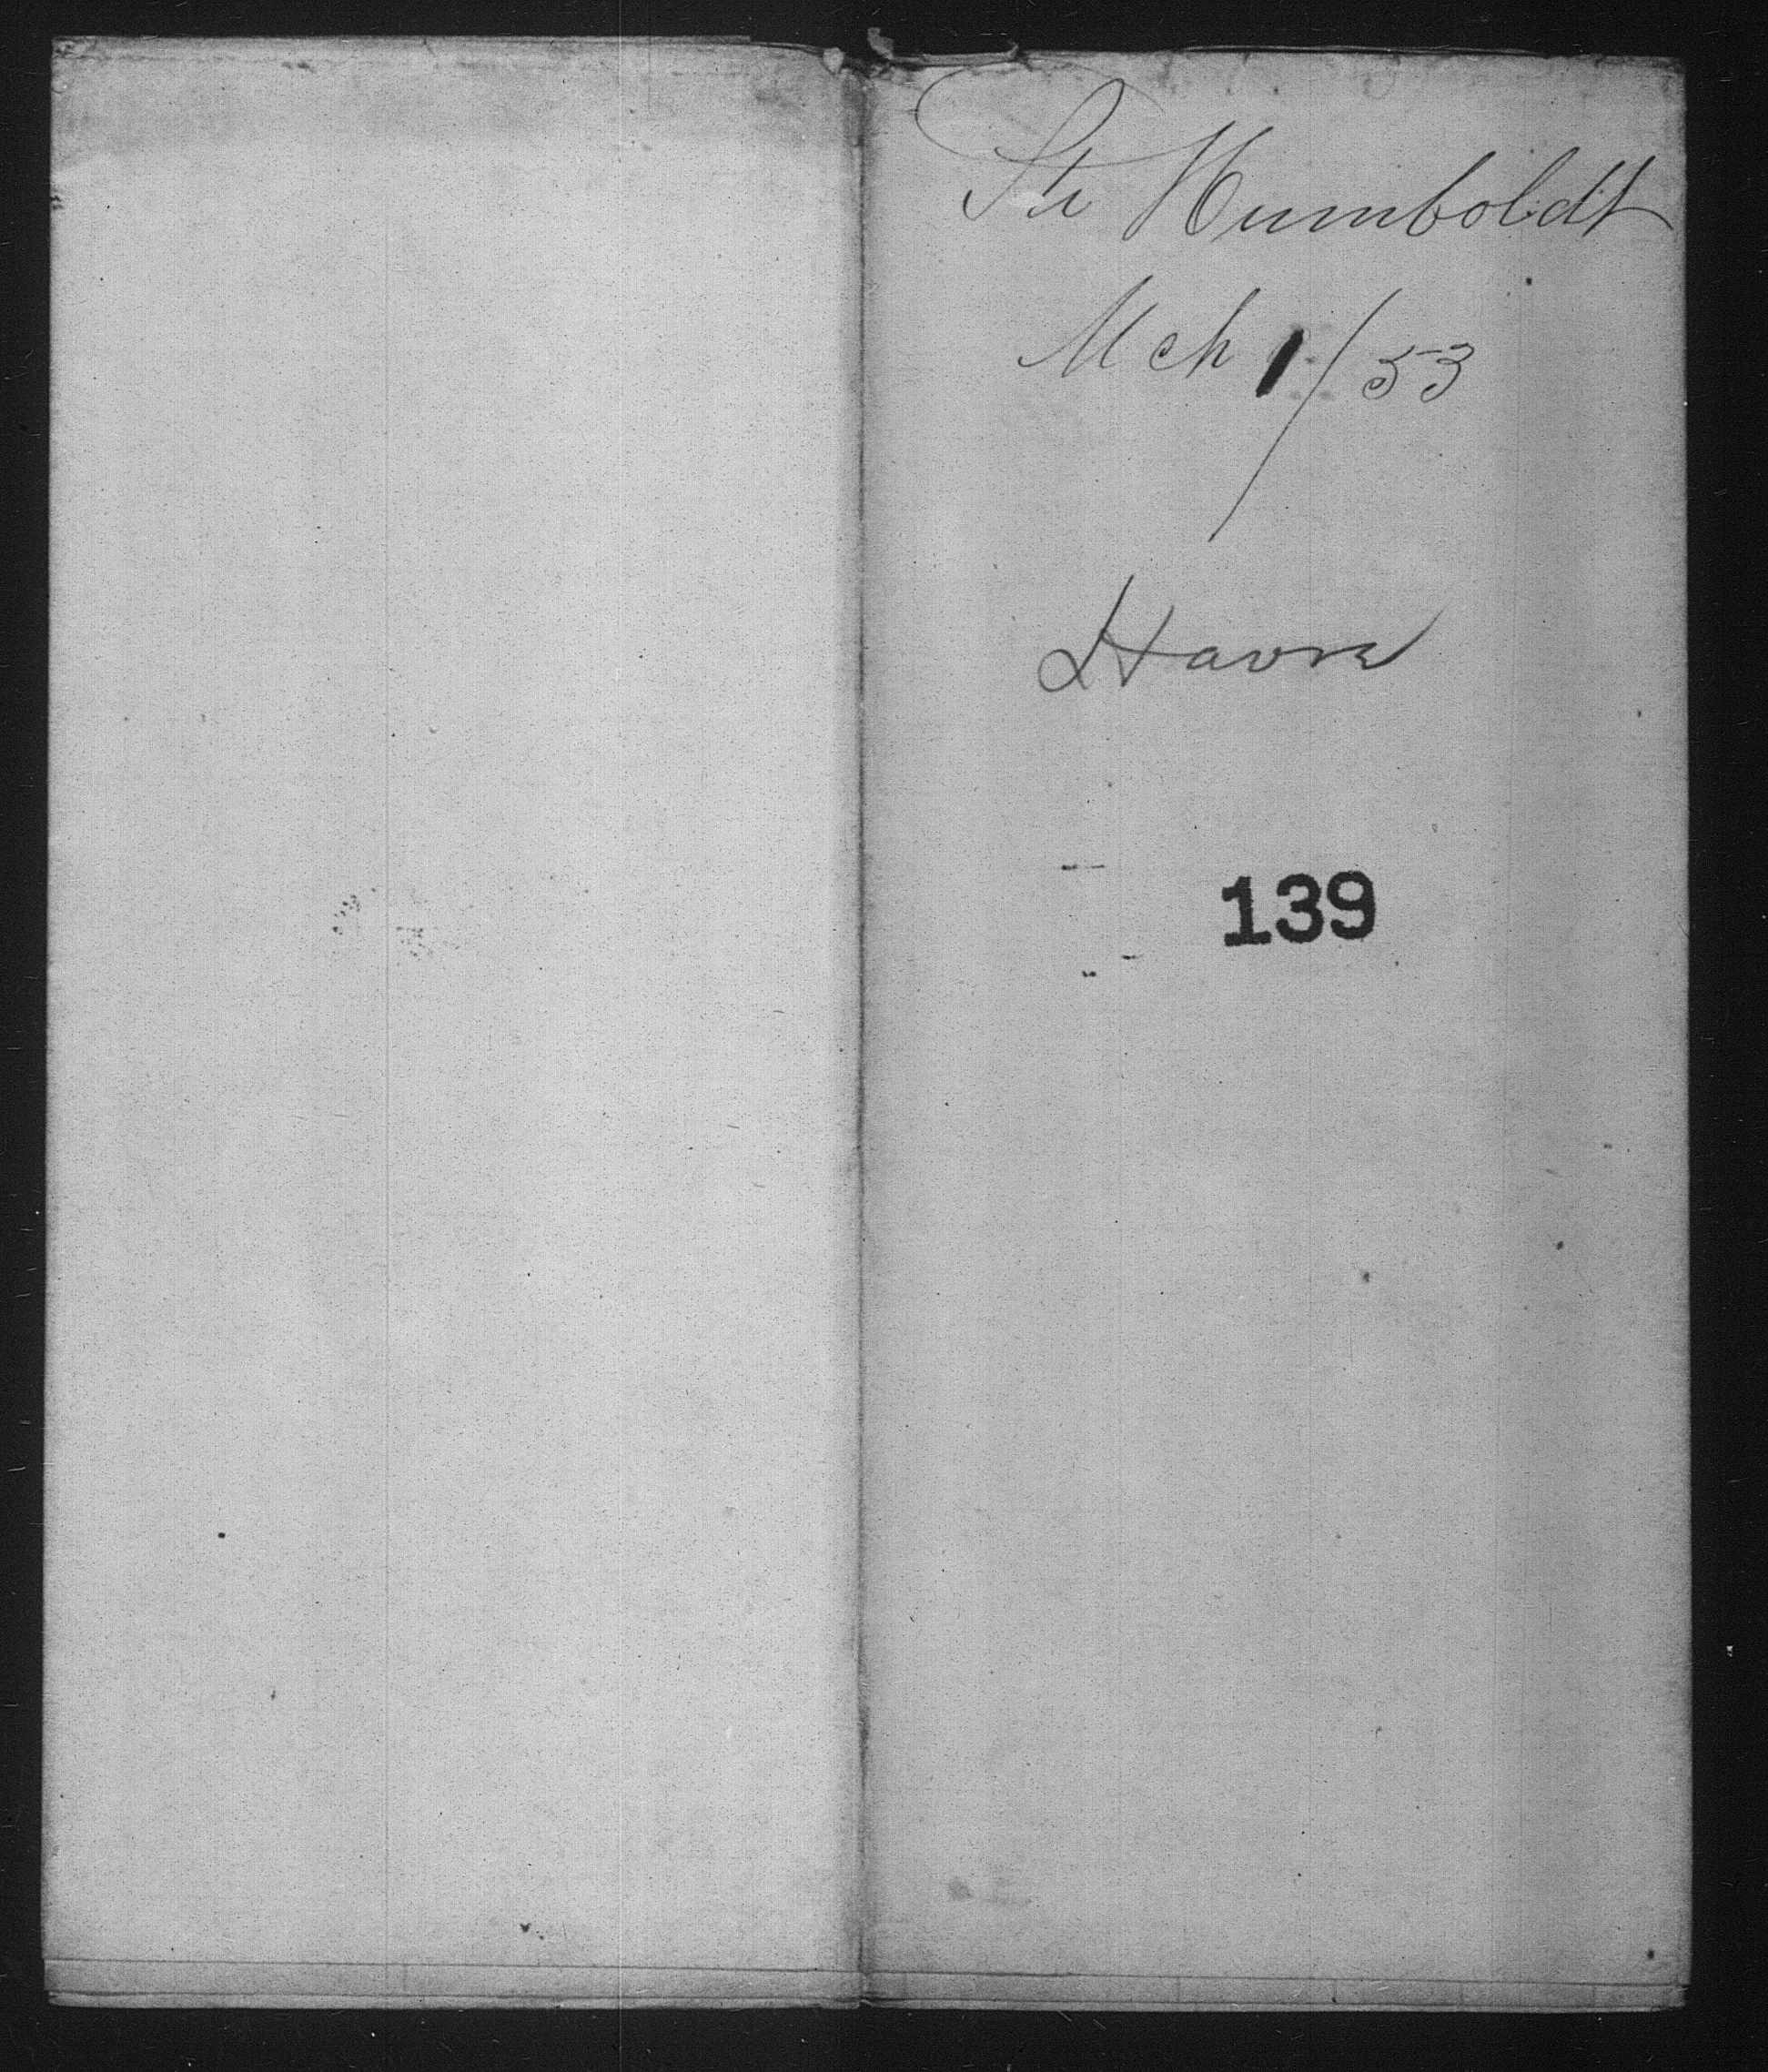 Str Humboldt
Mch 1/53
Havre
139